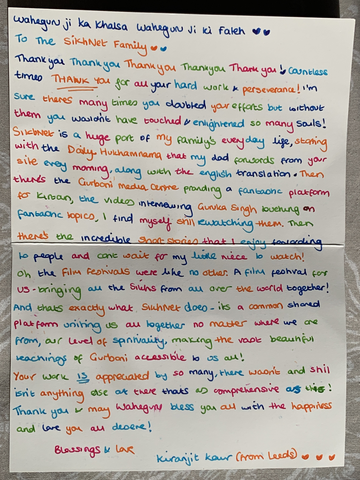 Waheguru ji ka Khalsa Waheguru Ji Ki Fateh
To The SikhNet Family
Thankyou Thankyou Thankyou Thankyou Thank you! Countless
times THANK YOU for all your hard work & perseverance! I'm
sure theres many times you doubted your efforts but without
them you wouldnt have touched & enlightened so many Souls!
SikhNet is a huge part of my family's everyday life, starting
with the Daily Hukhamnama that my dad forwards from your
site every morning, along with the english translation. Then
there's the Gurbani Media Centre providing a fantastic platform
for Kirtan, the videos interviewing Gurika Singh touching on
fantastic topics, I find myself still rewatching them. Then
there's the incredible Short Stories that I enjoy forwarding
to people and cant wait for my little niece to watch!
Oh the Film festivals were like no other. A film festival for
us - bringing all the Sikhs from all over the world together!
And thats exactly what SikhNet does - its a common shared
platform uniting us all together no matter where we are
from, our level of spirituality, making the vast beautiful
teachings of Gurbani accessible to us all!
Your work IS appreciated by so many, there wasnt and still
isnt anything else out there thats as comprehensive as this!
Thank you & may Waheguru bless you all with the happiness
and love you all deserve!
Blessings & love
Kiranjit Kaur (From Leeds)